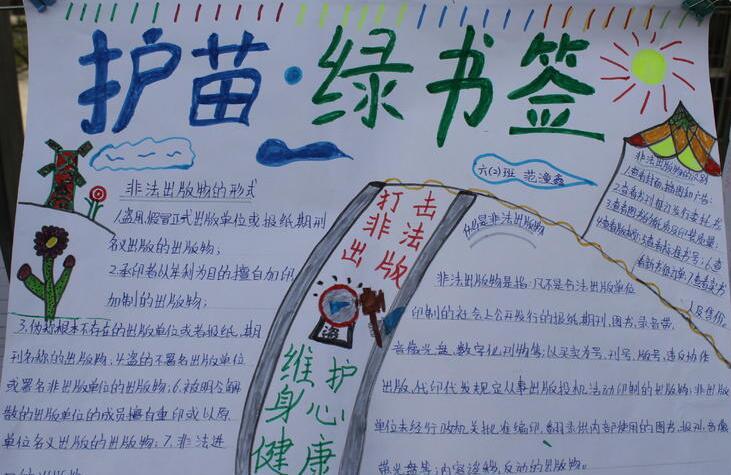 护苗·绿书签
六(2)班 范潼鑫
非法出版物的形式
1.盗用、假冒正式出版单位或报纸期刊
名义出版的出版物;
2.承印者以牟利为目的擅自加印
加制的出版物;
3.伪称根本不存在的出版单位或者报纸、期
刊名称的出版物、4.盗的不署名出版单位
或署名非出版单位的出版物;6.被明令解
散的出版单位的成员擅自重印或以原
单位名义出版的出版物;7.非法进
打击
非法
出版
盗
维护
身心
健康
什么是非法出版物
非法出版物是指:凡不是合法出版单位
印制的社会上公开发行的报纸期刊、图书、录音带、
音像光盘、数字化刊物等;以买卖书号、刊号、版号、违反协作
出版、代印代发规定从事出版投机活动印制的出版物;非出版
单位未经行政机关批准编印、翻录供内部使用的图书、报刊、音像
带光盘等;内容淫秽、反动的出版物。
非法出版物的识别
1.查看封面、插图和广告;
2.查看书刊排订发行委托书
3.查看图书的纸质及印装质量;
人及售价。